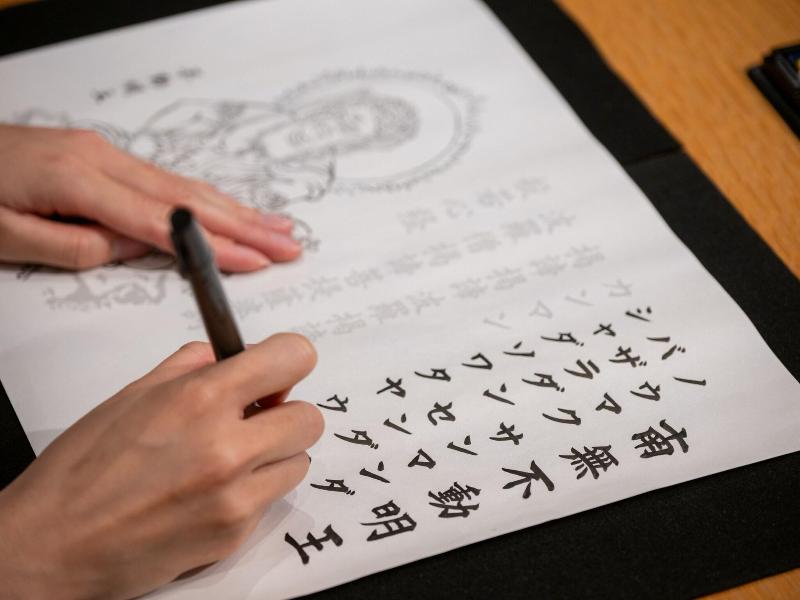 南無不動明王
ノウマクサンマンダ
バザラダンセンダ
シャダソワタヤウ
カンマン
羯諦羯諦波羅羯
波羅僧羯諦菩提薩婆訶
般若心経